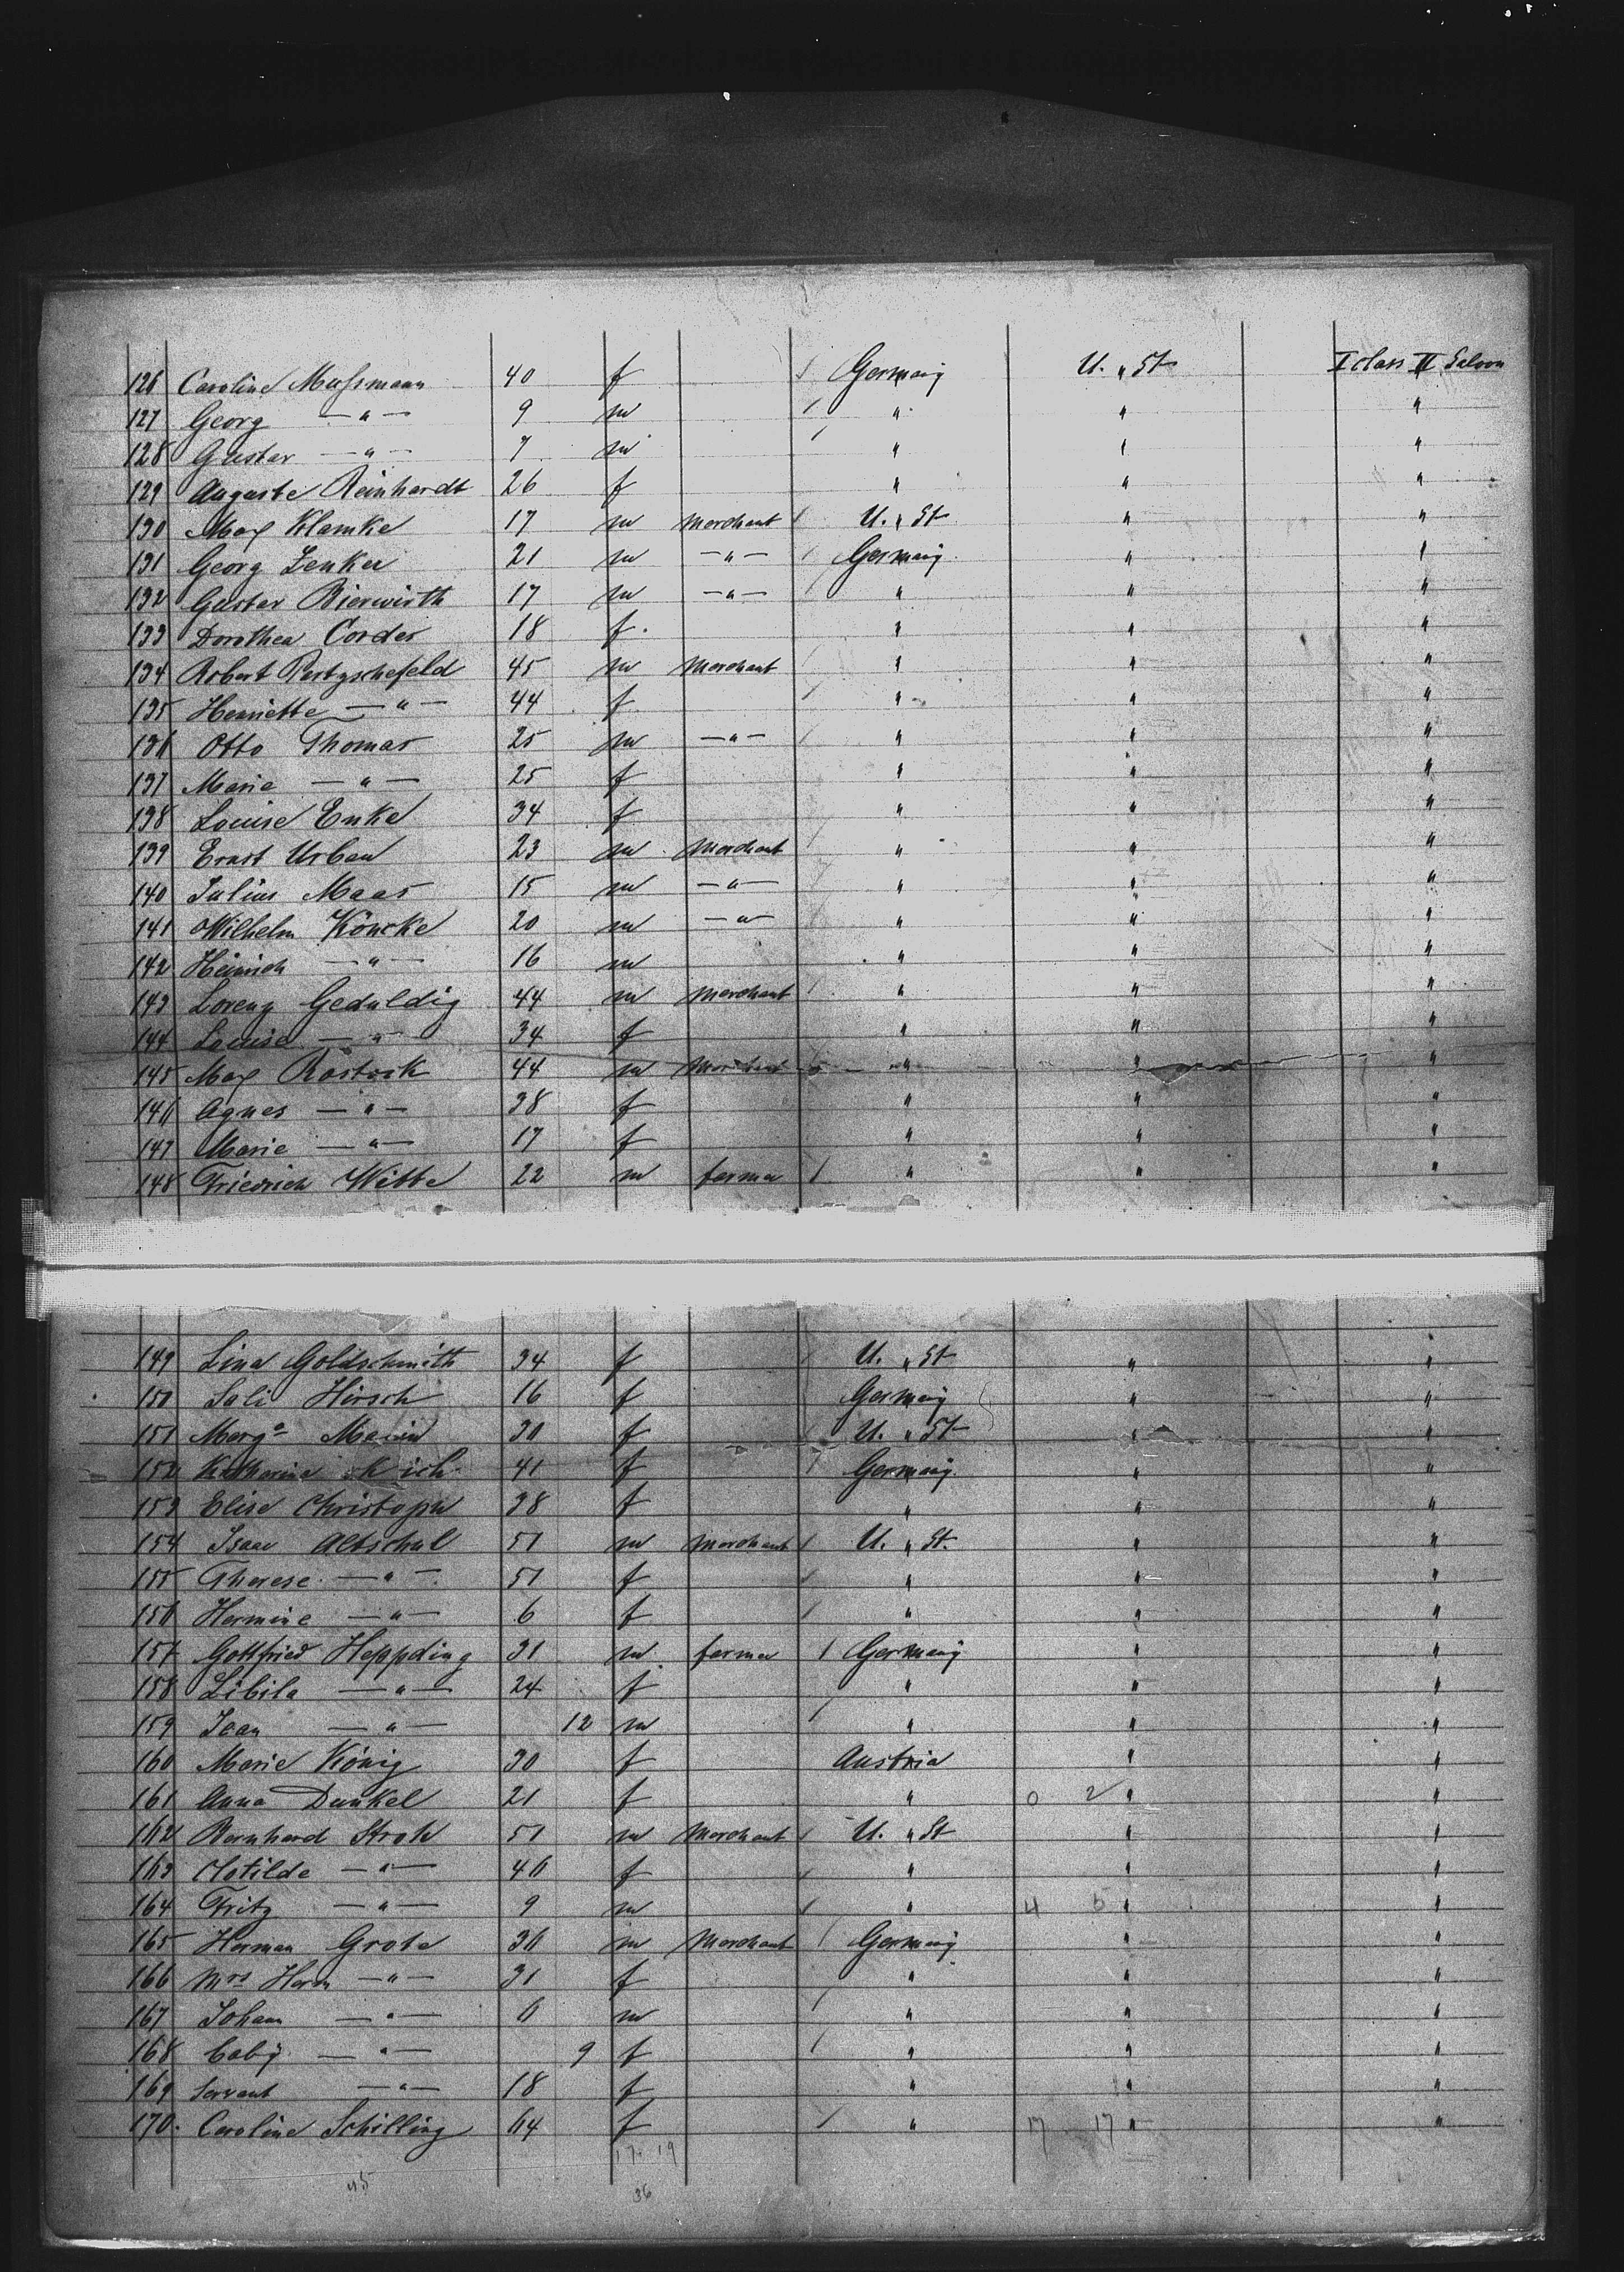 126 Caroline Mussmann 40 f Germany U. " St I class II Saloon
127 Georg — " — 9 m " " "
128 Gustav — " — 7 m " " "
129 Auguste Reinhardt 26 f " " "
130 Max Klamke 17 m merchant U. " St " "
131 Georg Zenker 21 m — " — Germany " "
132 Gustav Bierwirth 17 m — " — " " "
133 Dorothea Cordes 18 f. " " "
134 Robert 45 m merchant " " "
135 Henriette — " — 44 f " " "
136 Otto Thomas 25 m — " — " " "
137 Marie — " — 25 f " " "
138 Louise Enke 34 f " " "
139 Ernst Urban 23 m merchant " " "
140 Julius Maas 15 m — " — " " "
141 Wilhelm Köncke 20 m — " — " " "
142 Heinrich — " — 16 m " " "
143 Lorenz Geduldig 44 m merchant " " "
144 Louise — " — 34 f " " "
145 Max Rostock 44 m merchant " " "
146 Agnes — " — 38 f " " "
147 Marie — " — 17 f " " "
148 Friedrich Witte 22 m farmer " " "
149 Lina Goldschmith 34 f U. " St " "
150 Sali Hirsch 16 f Germany " "
151 30 f U. " St " "
152 Katharina 41 f Germany " "
153 Elise Christoph 38 f " " "
154 Isaac Altschul 51 m merchant U. " St. " "
155 Therese — " — 51 f " " "
156 Hermine — " — 6 f " " "
157 Gottfried Heppding 31 m farmer Germany " "
158 Libila — " — 24 f " " "
159 Jean — " — 12 m " " "
160 Marie König 30 f Austria " "
161 Anna Dunkel 21 f " 0 2 " "
162 Bernhard Stroh 51 m merchant U. " St " "
163 Clotilde — " — 46 f " " "
164 Fritz — " — 9 m " 4 5 " "
165 Herman Grote 36 m merchant Germany " "
166 Mrs Herm — " — 31 f " " "
167 Johann — " — 6 m " " "
168 baby — " — 9 f " " "
169 Servant — " — 18 f " " "
170. Caroline Schilling 64 f " 17 17 " "
17. 19
45 36